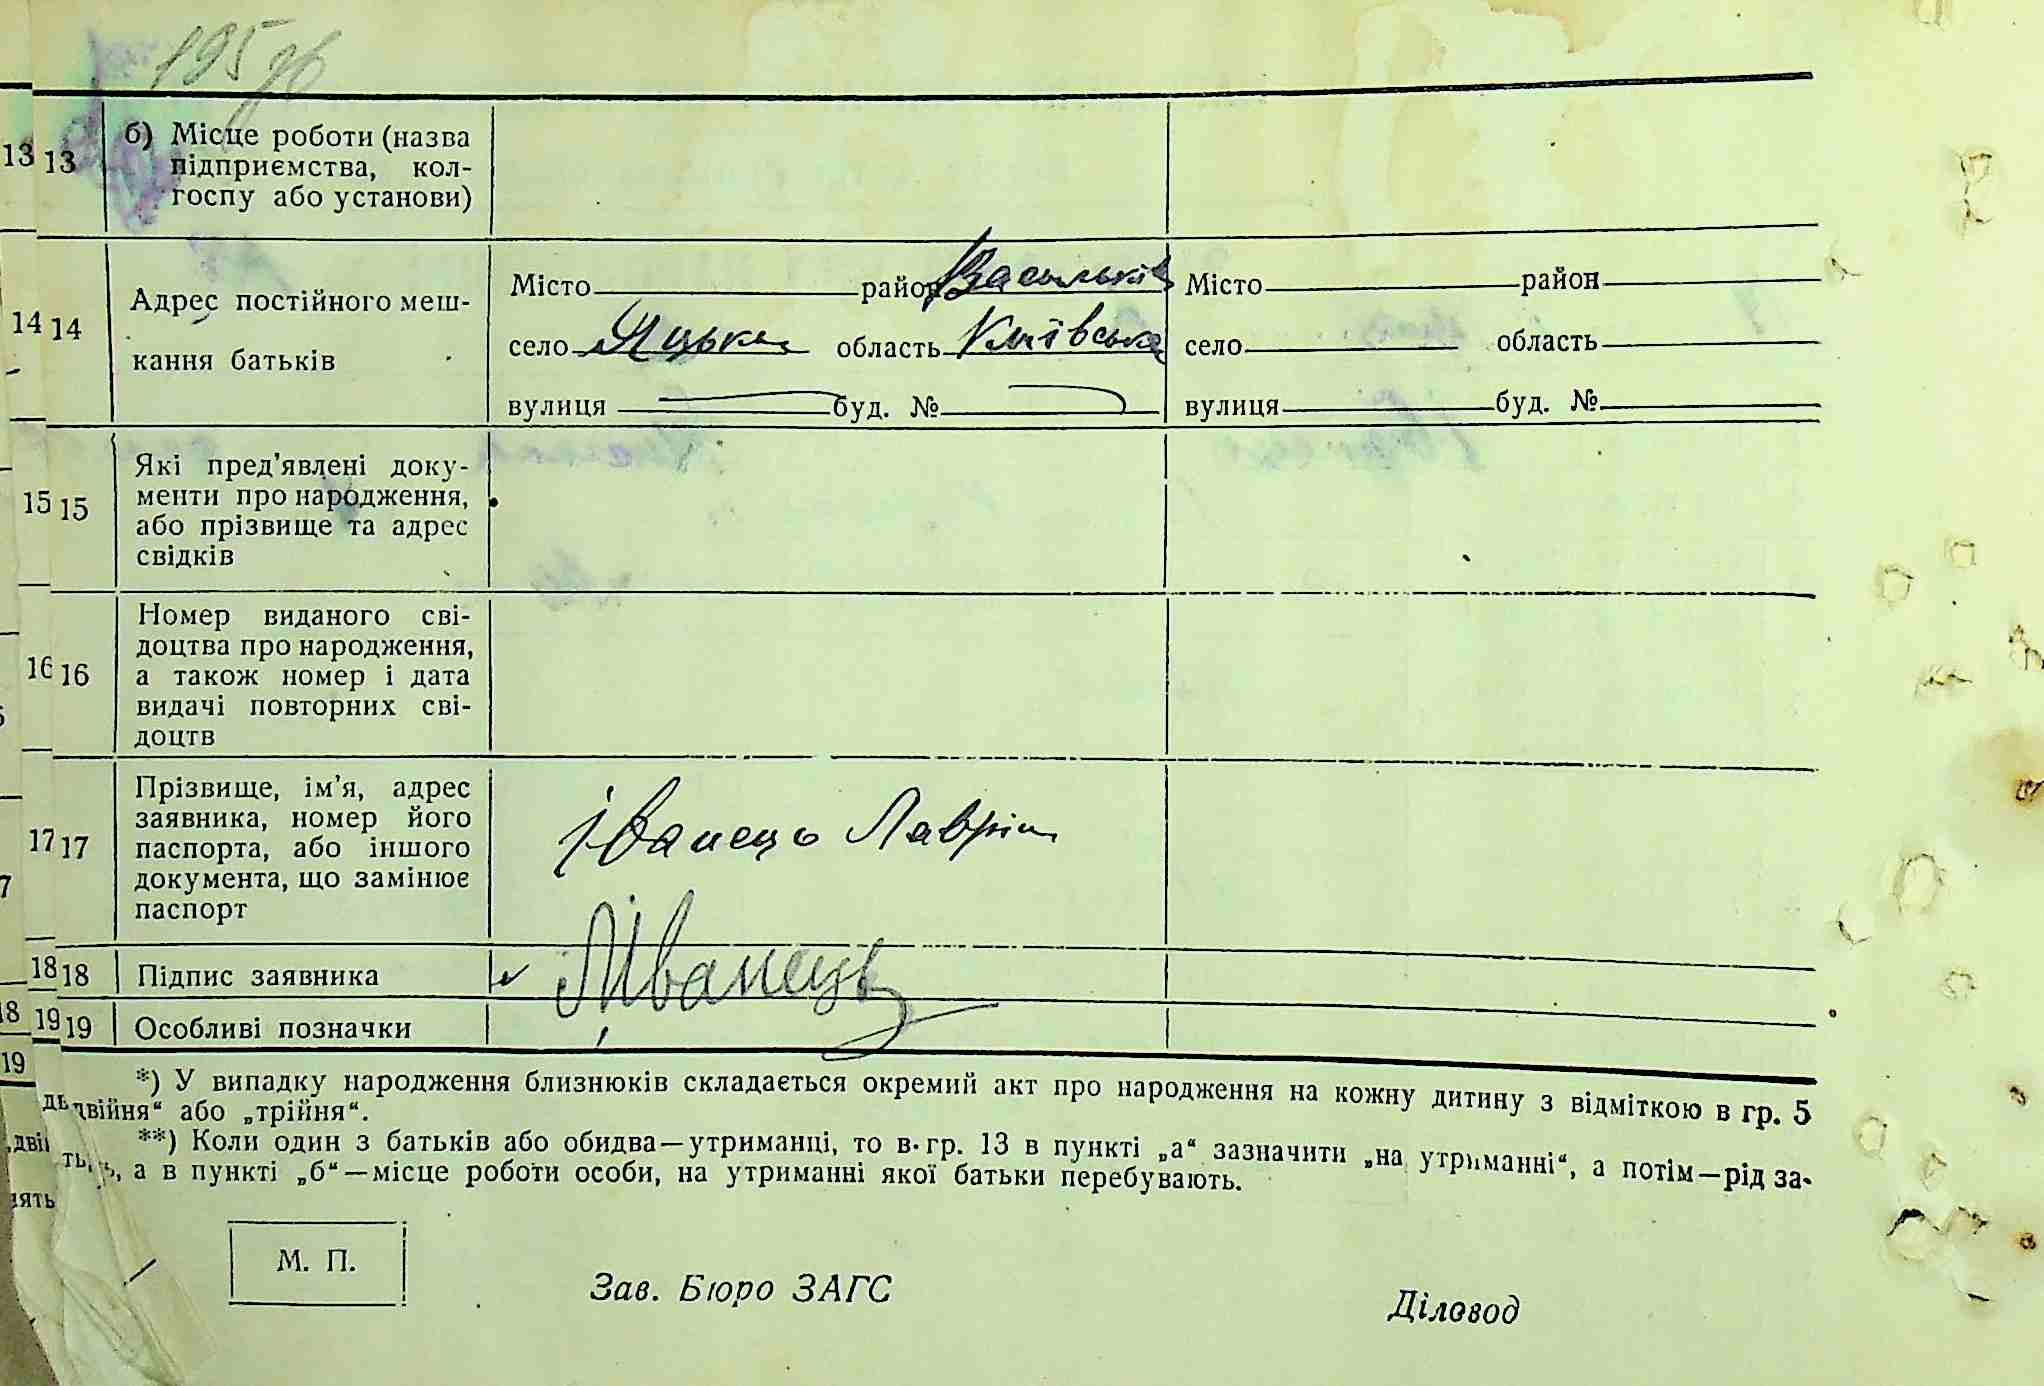 195 зв
13 13 б) Місце роботи (назва
підприємства, кол-
госпу або установи)
14 14 Адрес постійного меш-
кання батьків
Місто район Васильків
село Яцьки область Київська
вулиця буд. №
Місто район
село область
вулиця буд. №
15 15 Які пред'явлені доку-
менти про народження,
або прізвище та адрес
свідків
16 16 Номер виданого сві-
доцтва про народження,
а також номер і дата
видачі повторних сві-
доцтв
17 17 Прізвище, ім'я, адрес
заявника, номер його
паспорта, або іншого
документа, що замінює
паспорт
7
Іванець Лаврін
18 18 Підпис заявника Л Іванець
18 19 19 Особливі позначки
19
*) У випадку народження близнюків складається окремий акт про народження на кожну дитину з відміткою в гр. 5
„двійня“ або „трійня“.
**) Коли один з батьків або обидва—утриманці, то в гр. 13 в пункті „а“ зазначити „на утриманні“, а потім—рід за-
нять, а в пункті „б“—місце роботи особи, на утриманні якої батьки перебувають.
М. П.
Зав. Бюро ЗАГС
Діловод